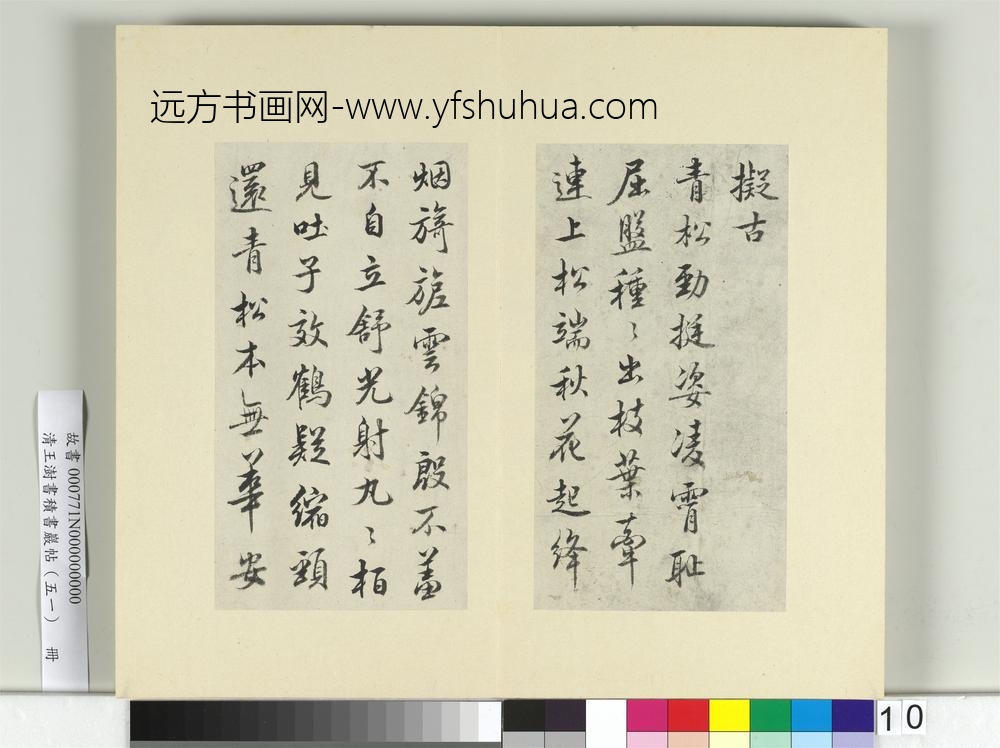 远方书画网-www.yfshuhua.com
擬古
青松勁挺姿凌霄恥
屈盤種〻出枝葉牽
連上松端秋花起絳
烟旖旎雲錦殷不羞
不自立舒光射丸〻柏
見吐子效鶴疑縮頸
還青松本無華安
故書 000771N000000000
清王澍書積書巖帖（五一） 冊
10